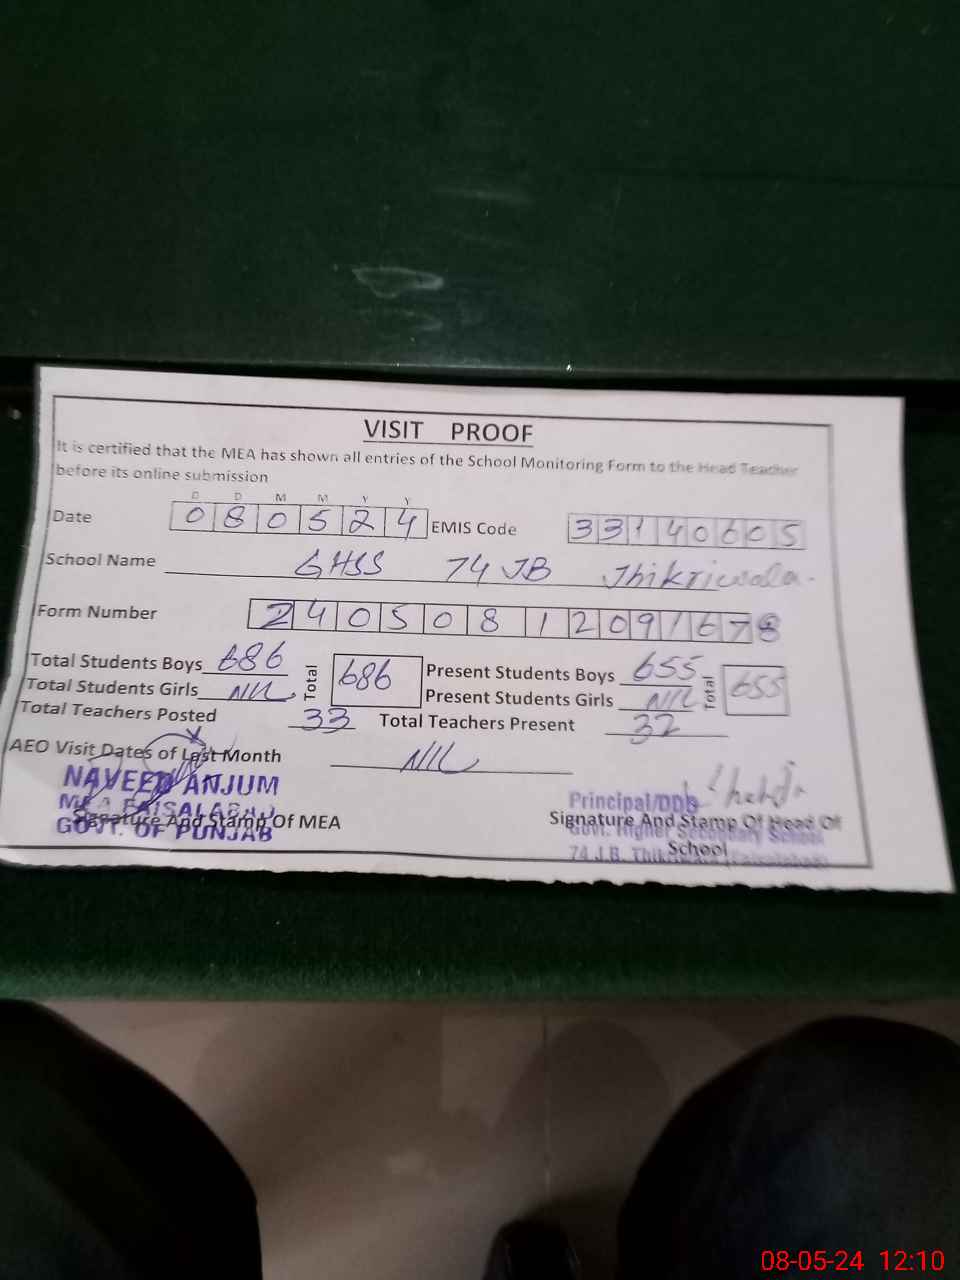 VISIT PROOF
It is certified that the MEA has shown all entries of the School Monitoring Form to the Head Teacher
before its online submission
D D M M Y Y
Date 080524 EMIS Code 33140605
School Name GHSS 74 JB Thikriwala.
Form Number 24050812091678
Total Students Boys 686 Total 686 Present Students Boys 655 Total 655
Total Students Girls NIL Present Students Girls NIL
Total Teachers Posted 33 Total Teachers Present 32
AEO Visit Dates of Last Month NIL
NAVEED ANJUM
MEA FAISALABAD
GOVT. OF PUNJAB
Signature And Stamp Of MEA
Principal/DDO
Signature And Stamp Of Head Of
School
Govt. Higher Secondary School
74 J.B.
08-05-24 12:10